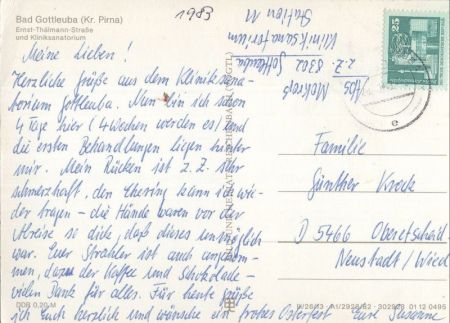 Bad Gottleuba (Kr. Pirna)
Ernst-Thälmann-Straße
und Kliniksanatorium
1983
Meine Lieben!
Herzliche Grüße aus dem Kliniksana-
torium Gottleuba. Nun bin ich schon
4 Tage hier (4 Wochen werden es) und
die ersten Behandlungen liegen hinter
mir. Mein Rücken ist z. Z. sehr
schmerzhaft, den Ehering kann ich wie-
der tragen – die Hände waren vor der
Abreise so dick, daß dieses unmöglich
war. Euer Strahler ist auch angekom-
men, dazu der Kaffee und Schokolade –
vielen Dank für Alles. Für heute grüße
ich Euch herzlich und wünsche ein frohes Osterfest Eure Susanne
DDR 0,20 M
Abs.
z. Z. 8302 Gottleuba
Kliniksanatorium
Station M
25
DDR
e
Familie
Günther Kreck
D 5466 Oberetscheid
Neustadt / Wied
01 12 0495